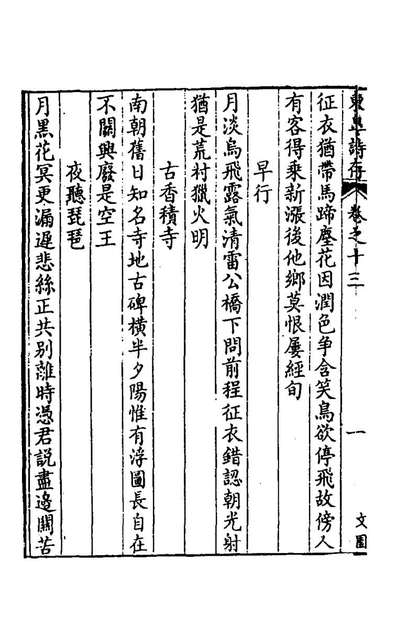 東皐詩存 卷之十三 一 文園
征衣猶帶馬蹄塵花因潤色爭含笑鳥欲停飛故傍人
有客得乘新漲後他鄉莫恨屢經旬
早行
月淡烏飛露氣清雷公橋下問前程征衣錯認朝光射
猶是荒村獵火明
古香積寺
南朝舊日知名寺地古碑橫半夕陽惟有浮圖長自在
不關興廢是空王
夜聽琵琶
月黑花冥更漏遲悲絲正共別離時憑君説盡邊關苦